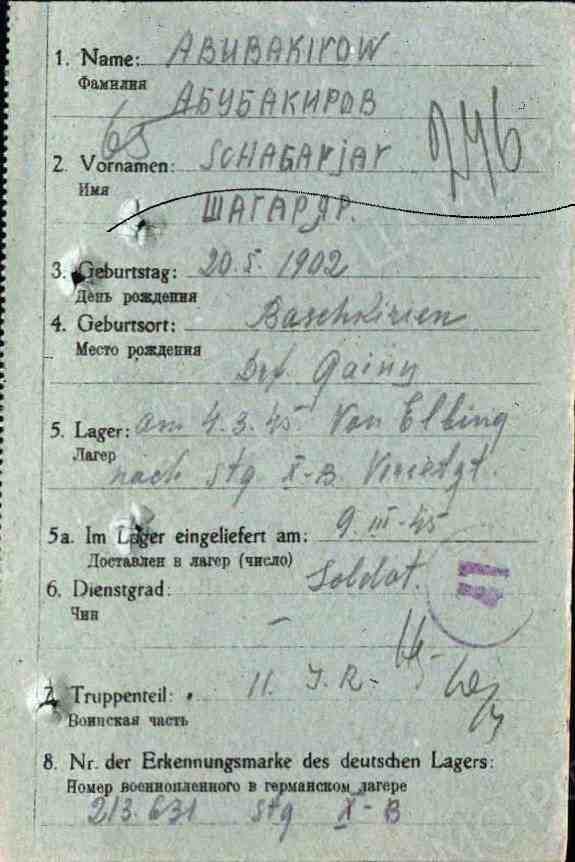 1. Name: ABUBAKIROW
Фамилия
АБУБАКИРОВ
65
246
2. Vornamen: SCHAGARJAR
Имя
ШАГАРЯР.
3. Geburtstag: 20.5.1902
День рождения
4. Geburtsort: Baschkirien
Место рождения
Drf Gainy
5. Lager: am 4.3.45 Von Elbing
Лагер
nach Stg X-B Versetzt.
5a. Im Lager eingeliefert am: 9.III-45
Доставлен в лагер (число)
6. Dienstgrad: Soldat.
Чин
7. Truppenteil: 11. J.R-
Воинская часть
8. Nr. der Erkennungsmarke des deutschen Lagers:
Номер военнопленного в германском лагере
213.631 Stg X-B